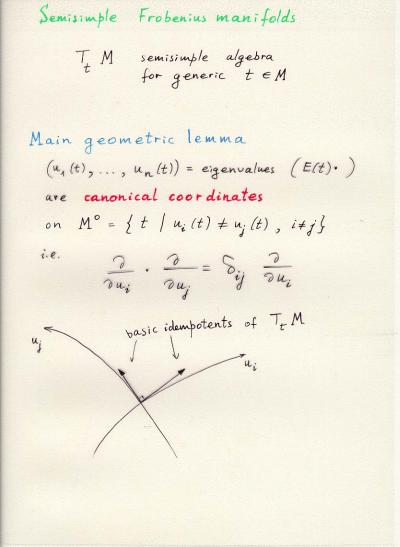 Semisimple Frobenius manifolds
T_t M semisimple algebra
for generic t ∈ M
Main geometric lemma
(u₁(t), ..., uₙ(t)) = eigenvalues (E(t)·)
are canonical coordinates
on M° = { t / uᵢ(t) ≠ uⱼ(t), i≠j}
i.e.
∂/∂uᵢ · ∂/∂uⱼ = δᵢⱼ ∂/∂uᵢ
basic idempotents of T_t M
uⱼ
uᵢ